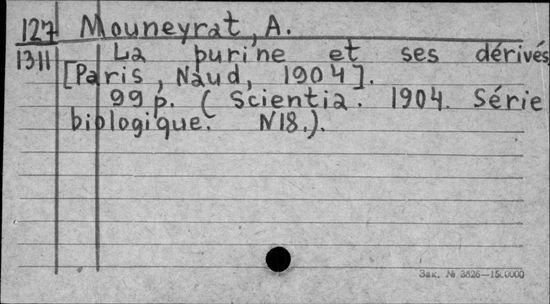 127 Mouneyrat, A.
1311 La purine et ses dérivés
[Paris, Naud, 1904].
99 p. (Scientia. 1904. Série
biologique. N18.).
Зак. № 3826—150000